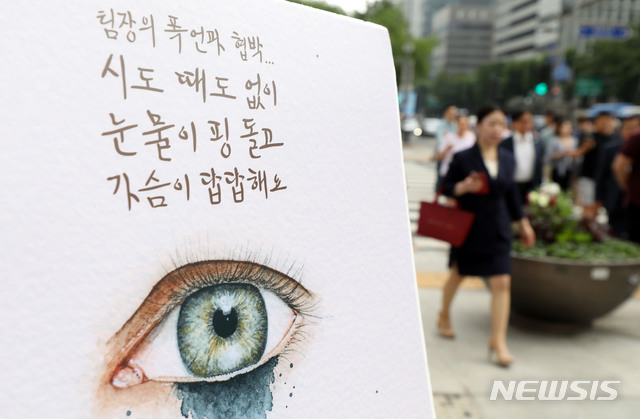 팀장의 폭언과 협박...
시도 때도 없이
눈물이 핑 돌고
가슴이 답답해요
NEWSIS